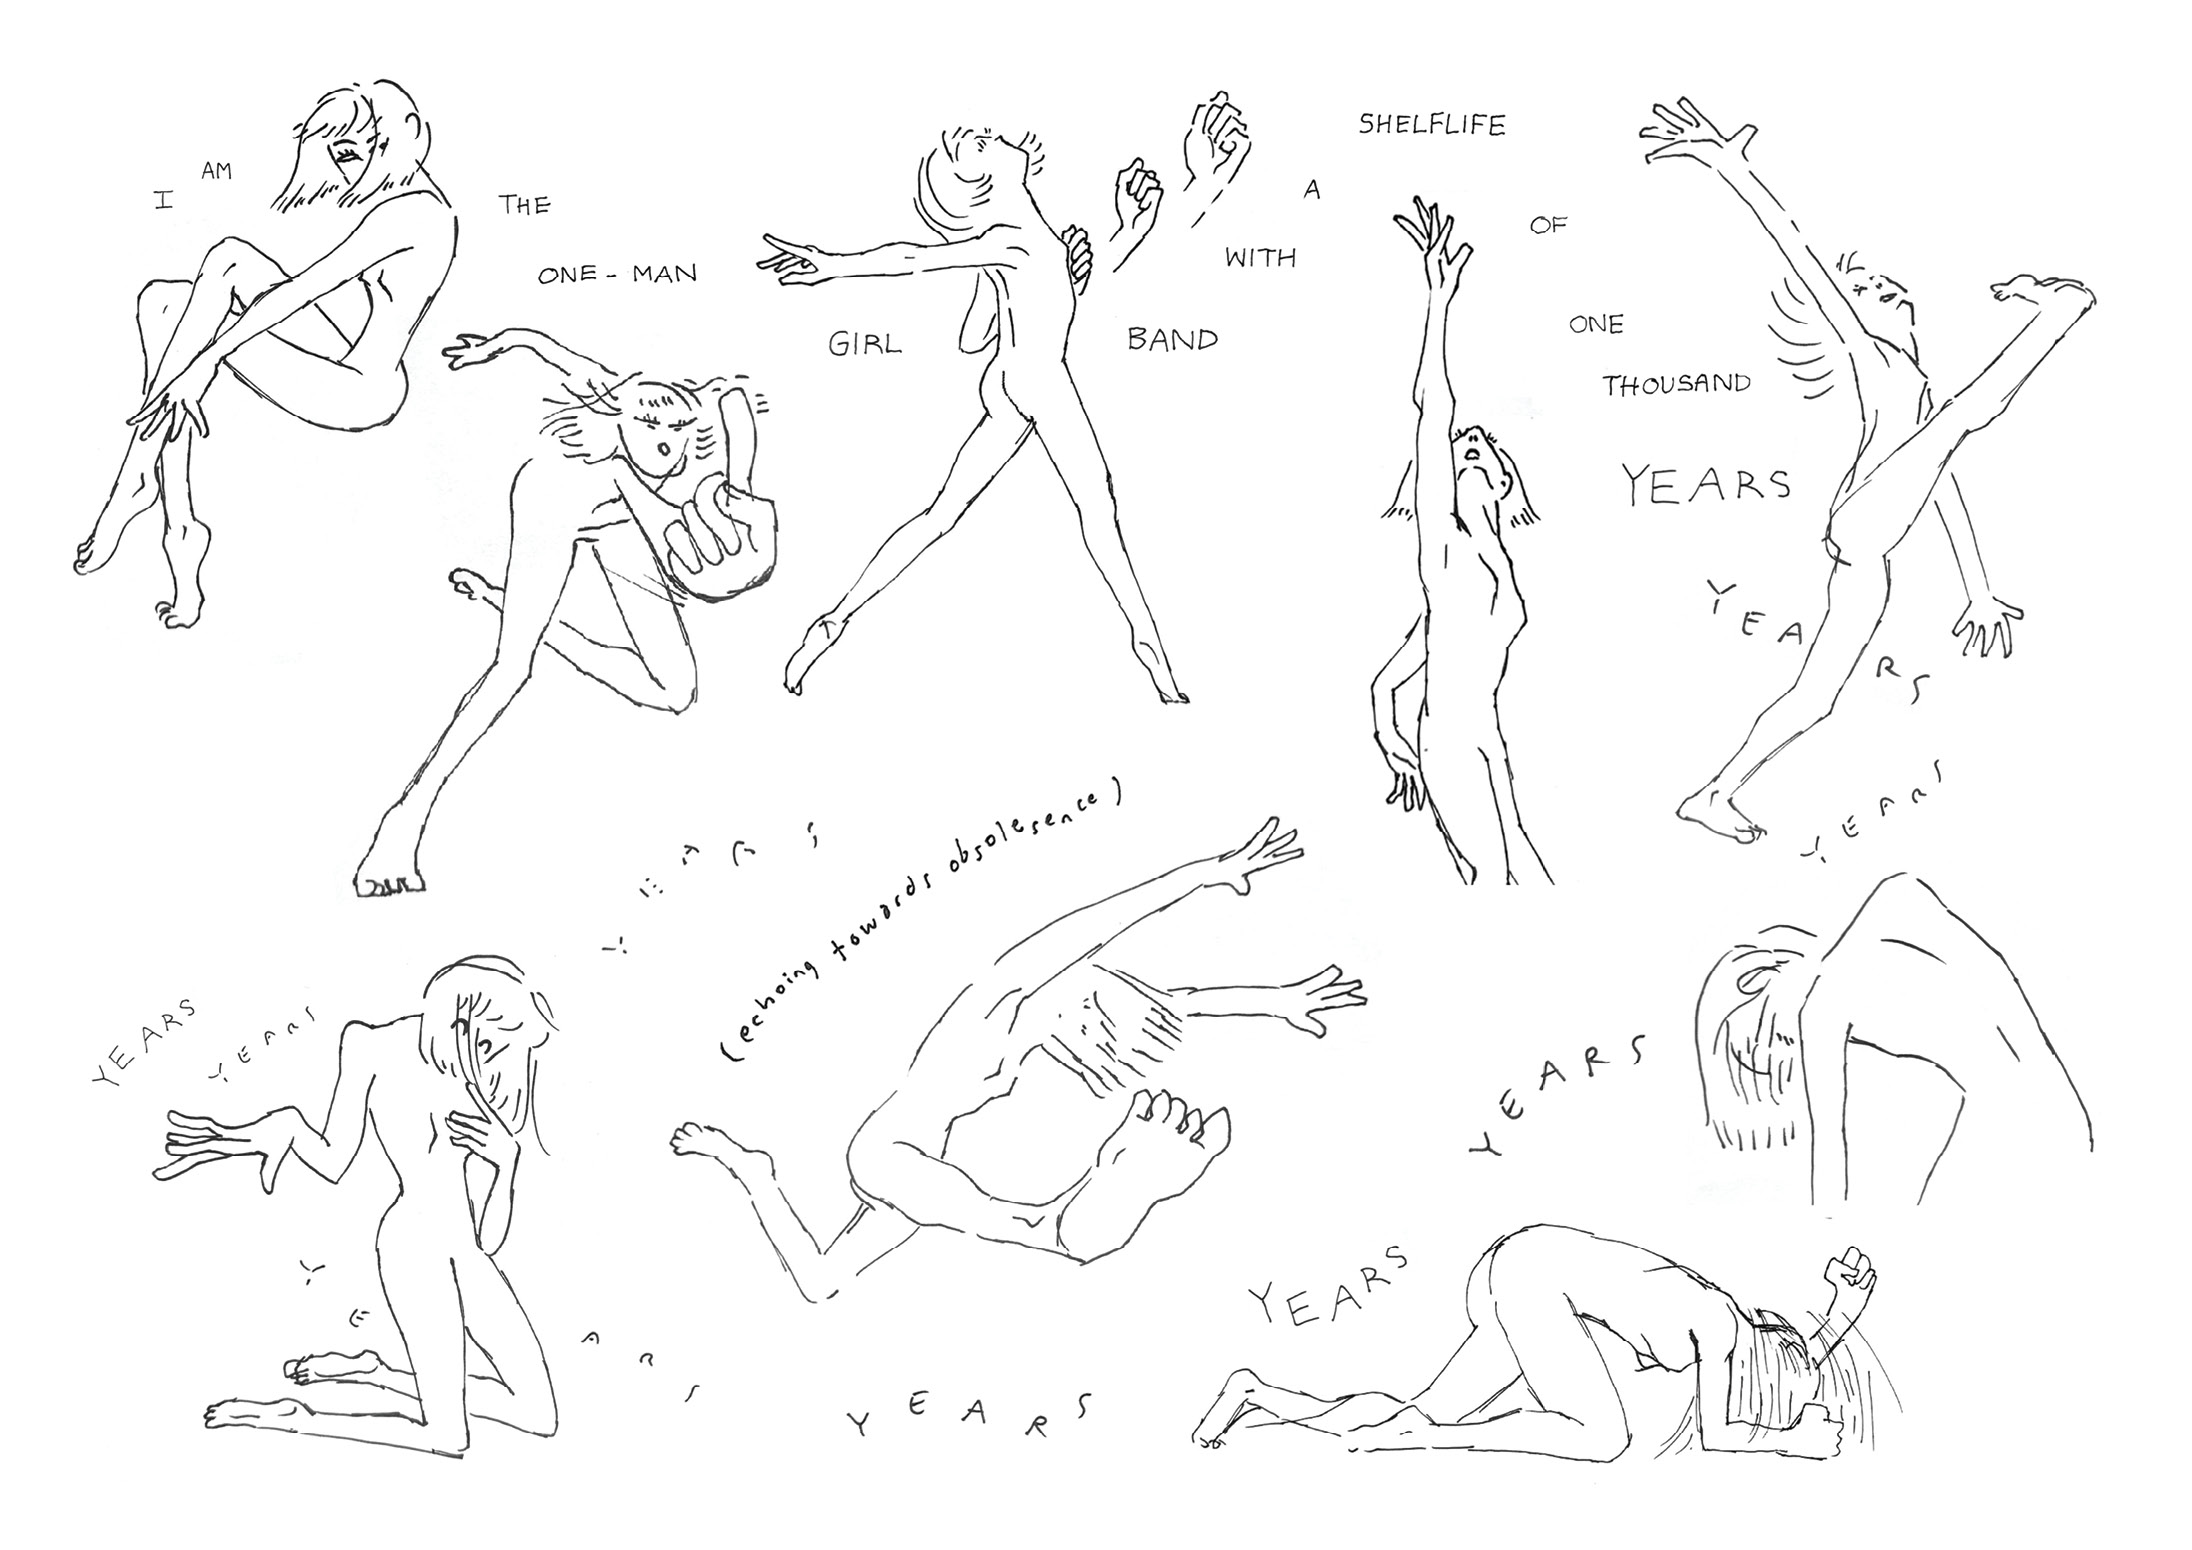 I AM THE
ONE-MAN
GIRL BAND
WITH A
SHELFLIFE
OF
ONE
THOUSAND
YEARS
YEARS
YEARS
YEARS
YEARS
YEARS
YEARS
(echoing towards obsolesence)
YEARS
YEARS
YEARS
YEARS